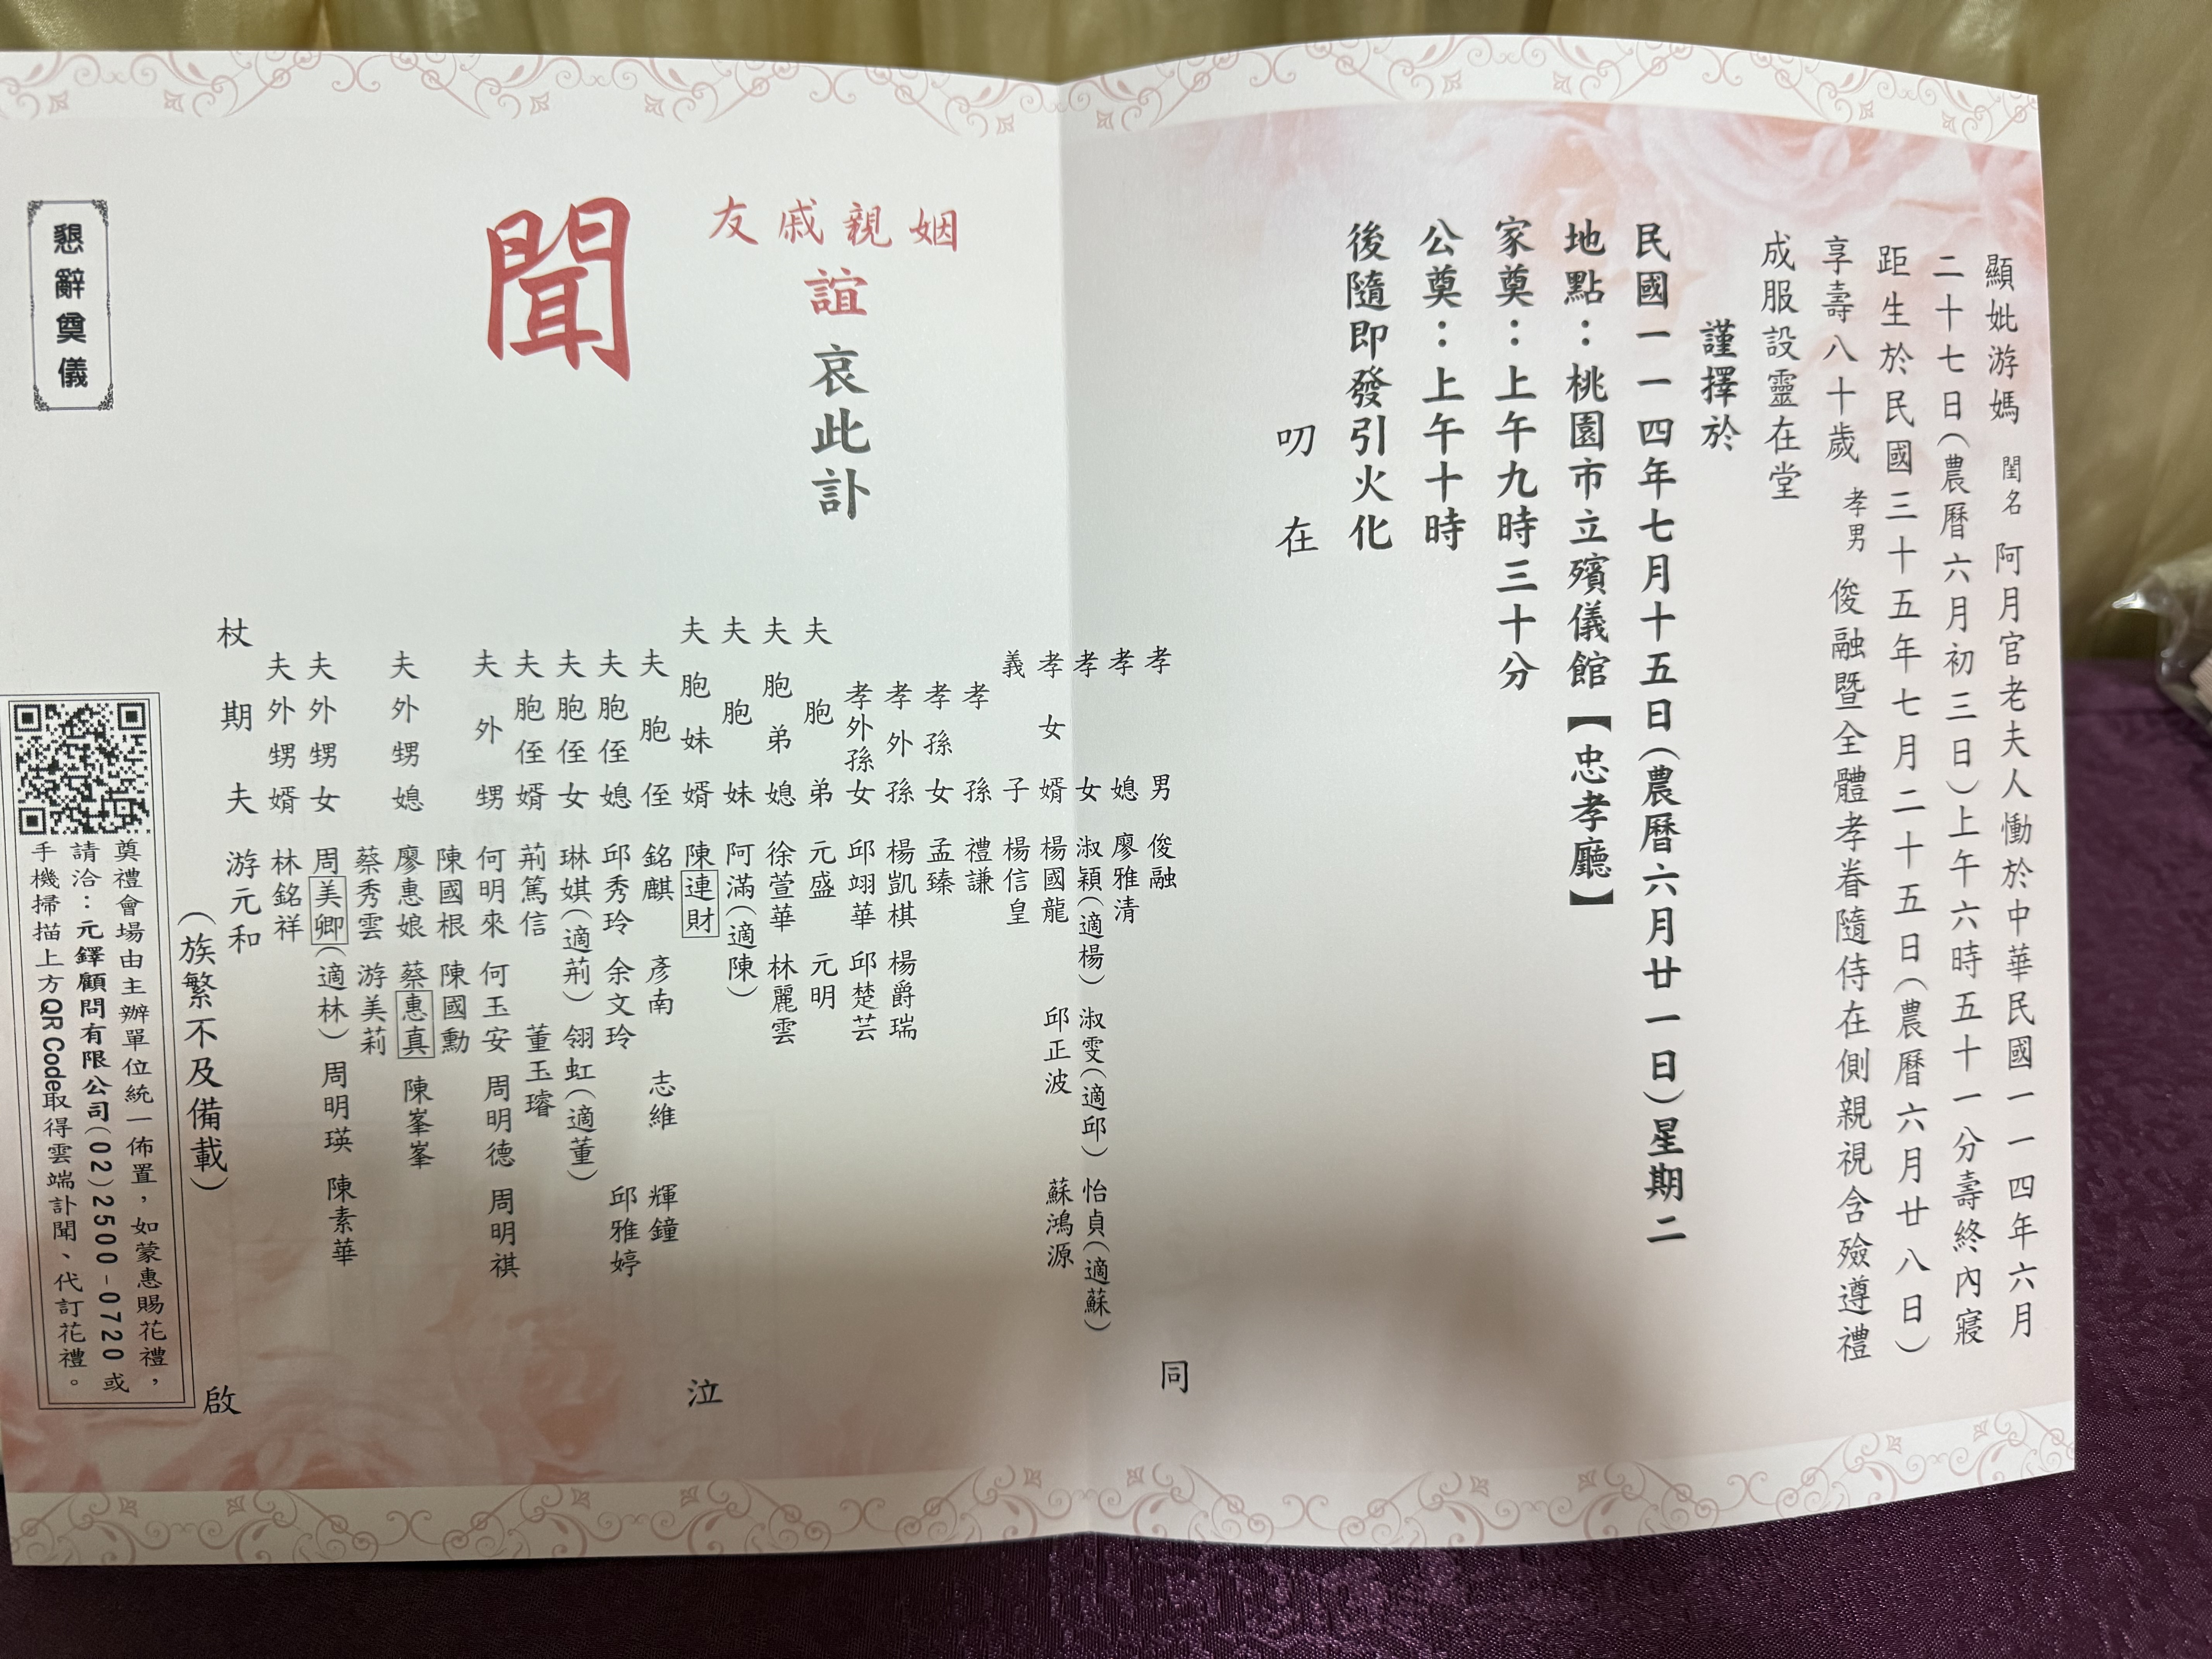 顯妣游媽 閨名 阿月官老夫人慟於中華民國一一四年六月
二十七日(農曆六月初三日)上午六時五十一分壽終內寢
距生於民國三十五年七月二十五日(農曆六月廿八日)
享壽八十歲 孝男 俊融暨全體孝眷隨侍在側親視含殮遵禮
成服設靈在堂
謹擇於
民國一一四年七月十五日(農曆六月廿一日)星期二
地點：桃園市立殯儀館【忠孝廳】
家奠：上午九時三十分
公奠：上午十時
後隨即發引火化
叨在
姻親戚友
誼哀此訃
聞
孝男 俊融
孝媳 廖雅清
孝女 淑穎(適楊) 淑雯(適邱) 怡貞(適蘇)
孝女婿 楊國龍 邱正波 蘇鴻源
義子 楊信皇
孝孫 禮謙
孝孫女 孟臻
孝外孫 楊凱棋 楊爵瑞
孝外孫女 邱翊華 邱楚芸
夫胞弟 元盛 元明
夫胞弟媳 徐萱華 林麗雲
夫胞妹 阿滿(適陳)
夫胞妹婿 陳連財
夫胞侄 銘麒 彥南 志維 輝鐘
夫胞侄媳 邱秀玲 余文玲 邱雅婷
夫胞侄女 琳娸(適荊) 翎虹(適董)
夫胞侄婿 荊篤信 董玉璿
夫外甥 何明來 何玉安 周明德 周明祺
陳國根 陳國勳
夫外甥媳 廖惠娘 蔡惠真 陳峯峯
蔡秀雲 游美莉
夫外甥女 周美卿(適林) 周明瑛 陳素華
夫外甥婿 林銘祥
杖期夫 游元和
(族繁不及備載)
同
泣
啟
懇辭奠儀
奠禮會場由主辦單位統一佈置，如蒙惠賜花禮，
請洽：元鐸顧問有限公司(02)2500-0720或
手機掃描上方QR Code取得雲端訃聞、代訂花禮。